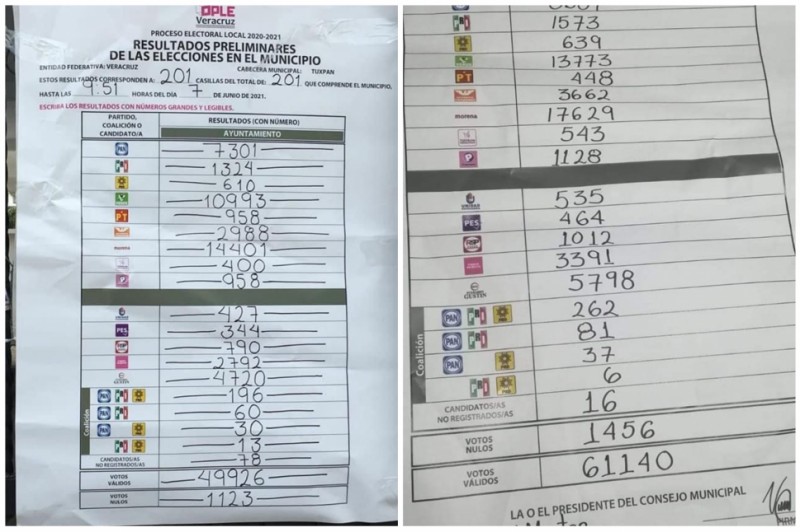 OPLE
Veracruz
PROCESO ELECTORAL LOCAL 2020-2021
RESULTADOS PRELIMINARES
DE LAS ELECCIONES EN EL MUNICIPIO
ENTIDAD FEDERATIVA: VERACRUZ CABECERA MUNICIPAL: TUXPAN
ESTOS RESULTADOS CORRESPONDEN A: 201 CASILLAS DEL TOTAL DE: 201 QUE COMPRENDE EL MUNICIPIO,
HASTA LAS 9:51 HORAS DEL DÍA 7 DE JUNIO DE 2021.
ESCRIBA LOS RESULTADOS CON NÚMEROS GRANDES Y LEGIBLES.
PARTIDO, COALICIÓN O CANDIDATO/A
RESULTADOS (CON NÚMERO)
AYUNTAMIENTO
PAN 7301
PRI 1324
PRD 610
10993
PT 958
2988
morena 14401
400
958
427
PES 344
790
2792
4720
Coalición
PAN PRI PRD 196
PAN PRI 60
PAN PRD 30
PRI PRD 13
CANDIDATOS/AS NO REGISTRADOS/AS 78
VOTOS VÁLIDOS 49926
VOTOS NULOS 1123
PRI 1573
PRD 639
13773
PT 448
3662
morena 17629
543
1128
535
PES 464
1012
3391
5798
Coalición
PAN PRI PRD 262
PAN PRI 81
PAN PRD 37
PRI PRD 6
CANDIDATOS/AS NO REGISTRADOS/AS 16
VOTOS NULOS 1456
VOTOS VÁLIDOS 61140
LA O EL PRESIDENTE DEL CONSEJO MUNICIPAL